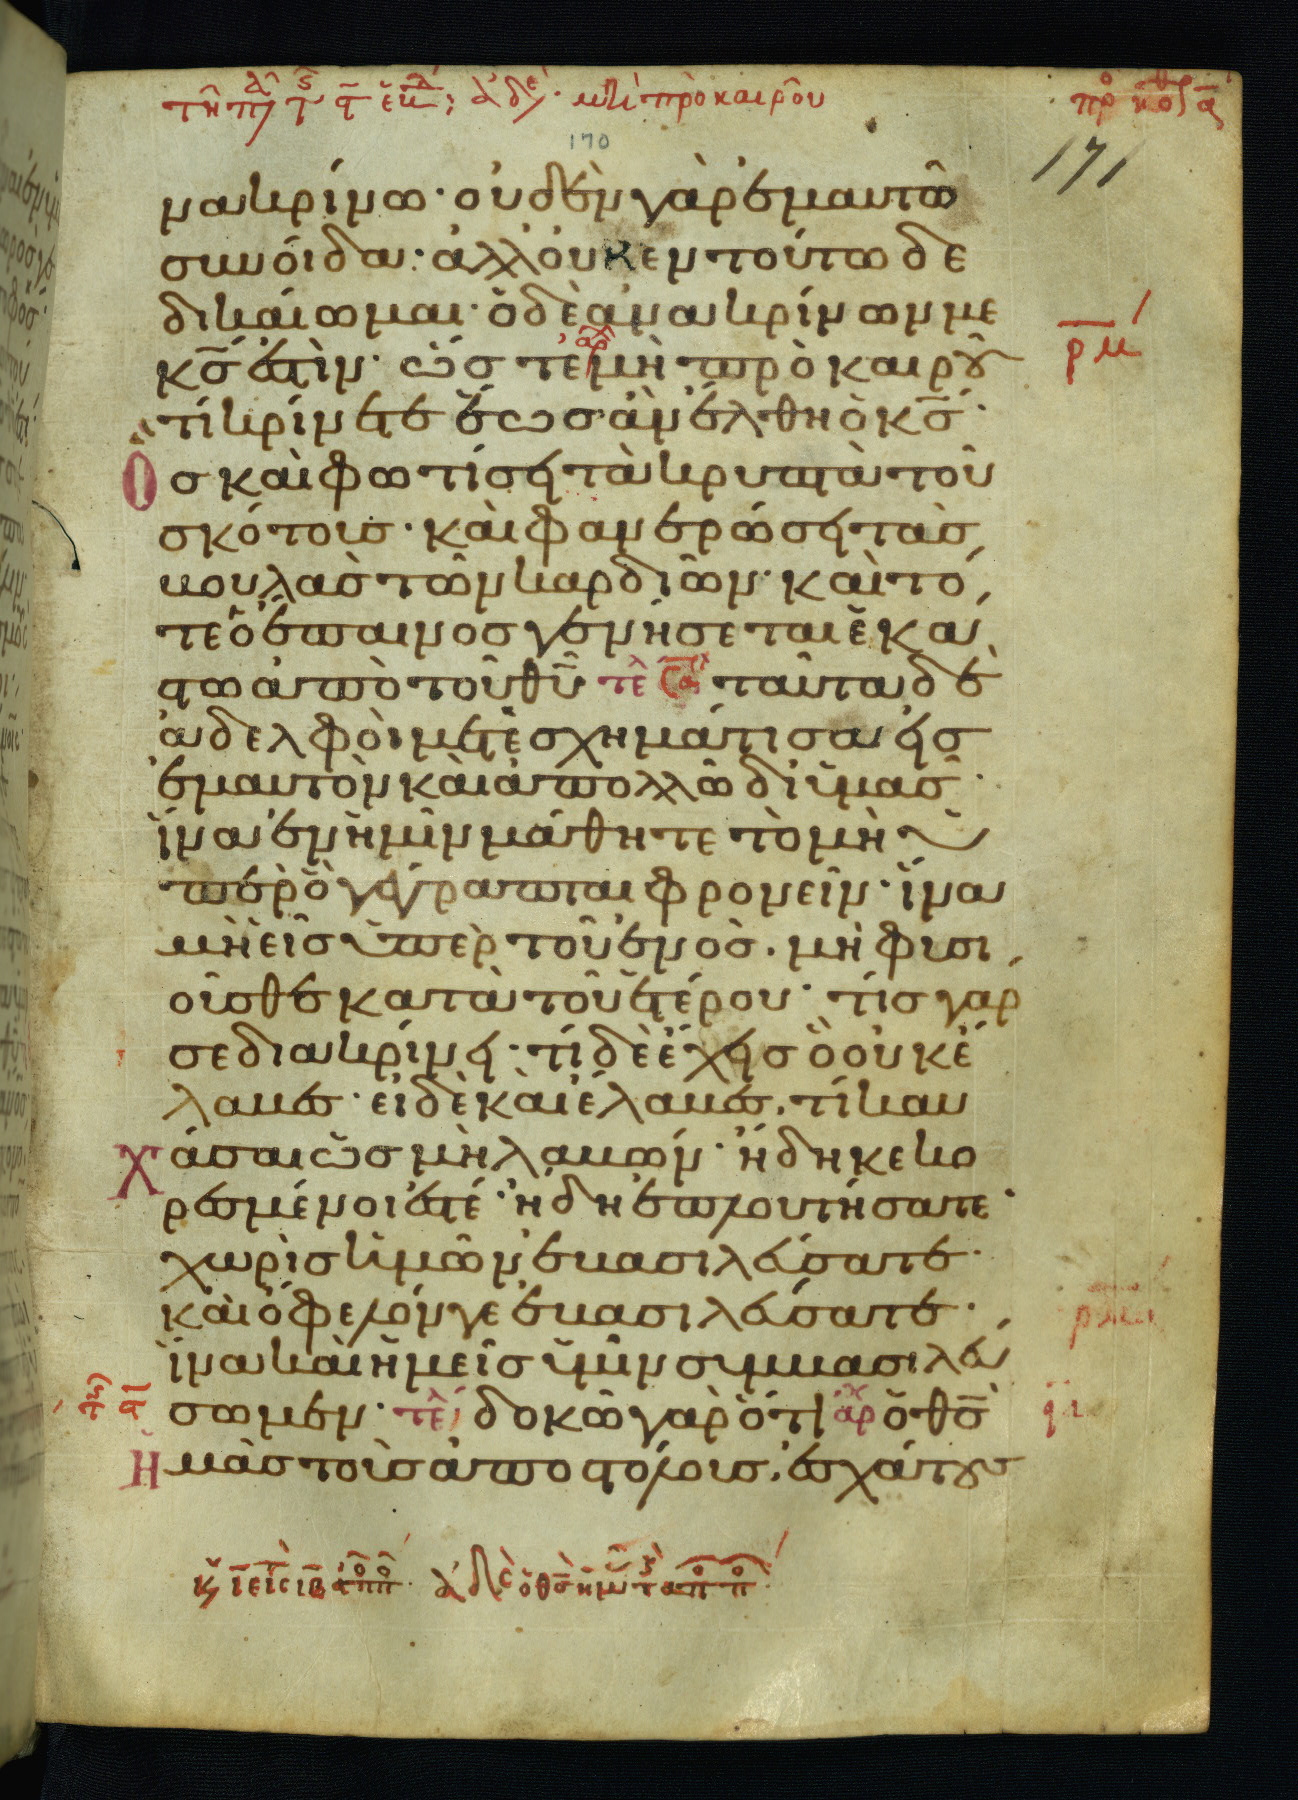 μὴ πρὸ καιροῦ
170
171
νακρίνω· οὐδὲν γὰρ ἐμαυτῶ
συνόιδα· ἀλλ' ὀυκ εν τούτω δε
δικάιωμαι· ὁ δὲ ἀνακρίνων με
κ̅σ̅ ἐστὶν· ὥστε μὴ πρὸ καιροῦ
τί κρίνετε ἕωσ ἀν ἔλθη ὁ κ̅σ̅·
Ὃσ καὶ φωτίσει τὰ κρυπτὰ τοῦ
σκότουσ· καὶ φανερώσει τὰσ
βουλὰσ τῶν καρδιῶν· καὶ τό
τε ὁ ἔπαινοσ γενήσεται ἑκά
στω ἀπὸ τοῦ θ̅υ̅ τε ταῦτα δὲ
ἀδελφὸι μετεσχημάτισα εἰσ
ἐμαυτὸν καὶ ἀπολλῶ δι' ὑμᾶσ·
ἵνα ἐν ἡμῖν μάθητε τὸ μὴ ὑ
περ ὃ γέγραπται φρονεῖν· ἵνα
μὴ εἷσ ὑπερ τοῦ ἑνὸσ· μὴ φυσι
οῦσθε κατὰ τοῦ ἑτέρου· τίσ γαρ
σε διακρίνει· τί δὲ ἔχεισ ὃ οὐκ ἔ
λαβεσ· εἰ δὲ καὶ ἔλαβεσ, τί καυ
χάσαι ὡσ μὴ λαβών· ἤδη κεκο
ρεσμένοι ἐστέ· ἤδη ἐπλουτήσατε·
χωρὶσ ἡμῶν ἐβασιλεύσατε·
καὶ ὄφελόν γε ἐβασιλεύσατε·
ἵνα καὶ ἡμεῖσ ὑμῖν συμβασιλεύ
σωμεν· τε δοκῶ γὰρ ὅτι αρχ ὁ θ̅σ̅
Ἡμᾶσ τοὺσ ἀποστόλουσ, ἐσχάτουσ
ρμ